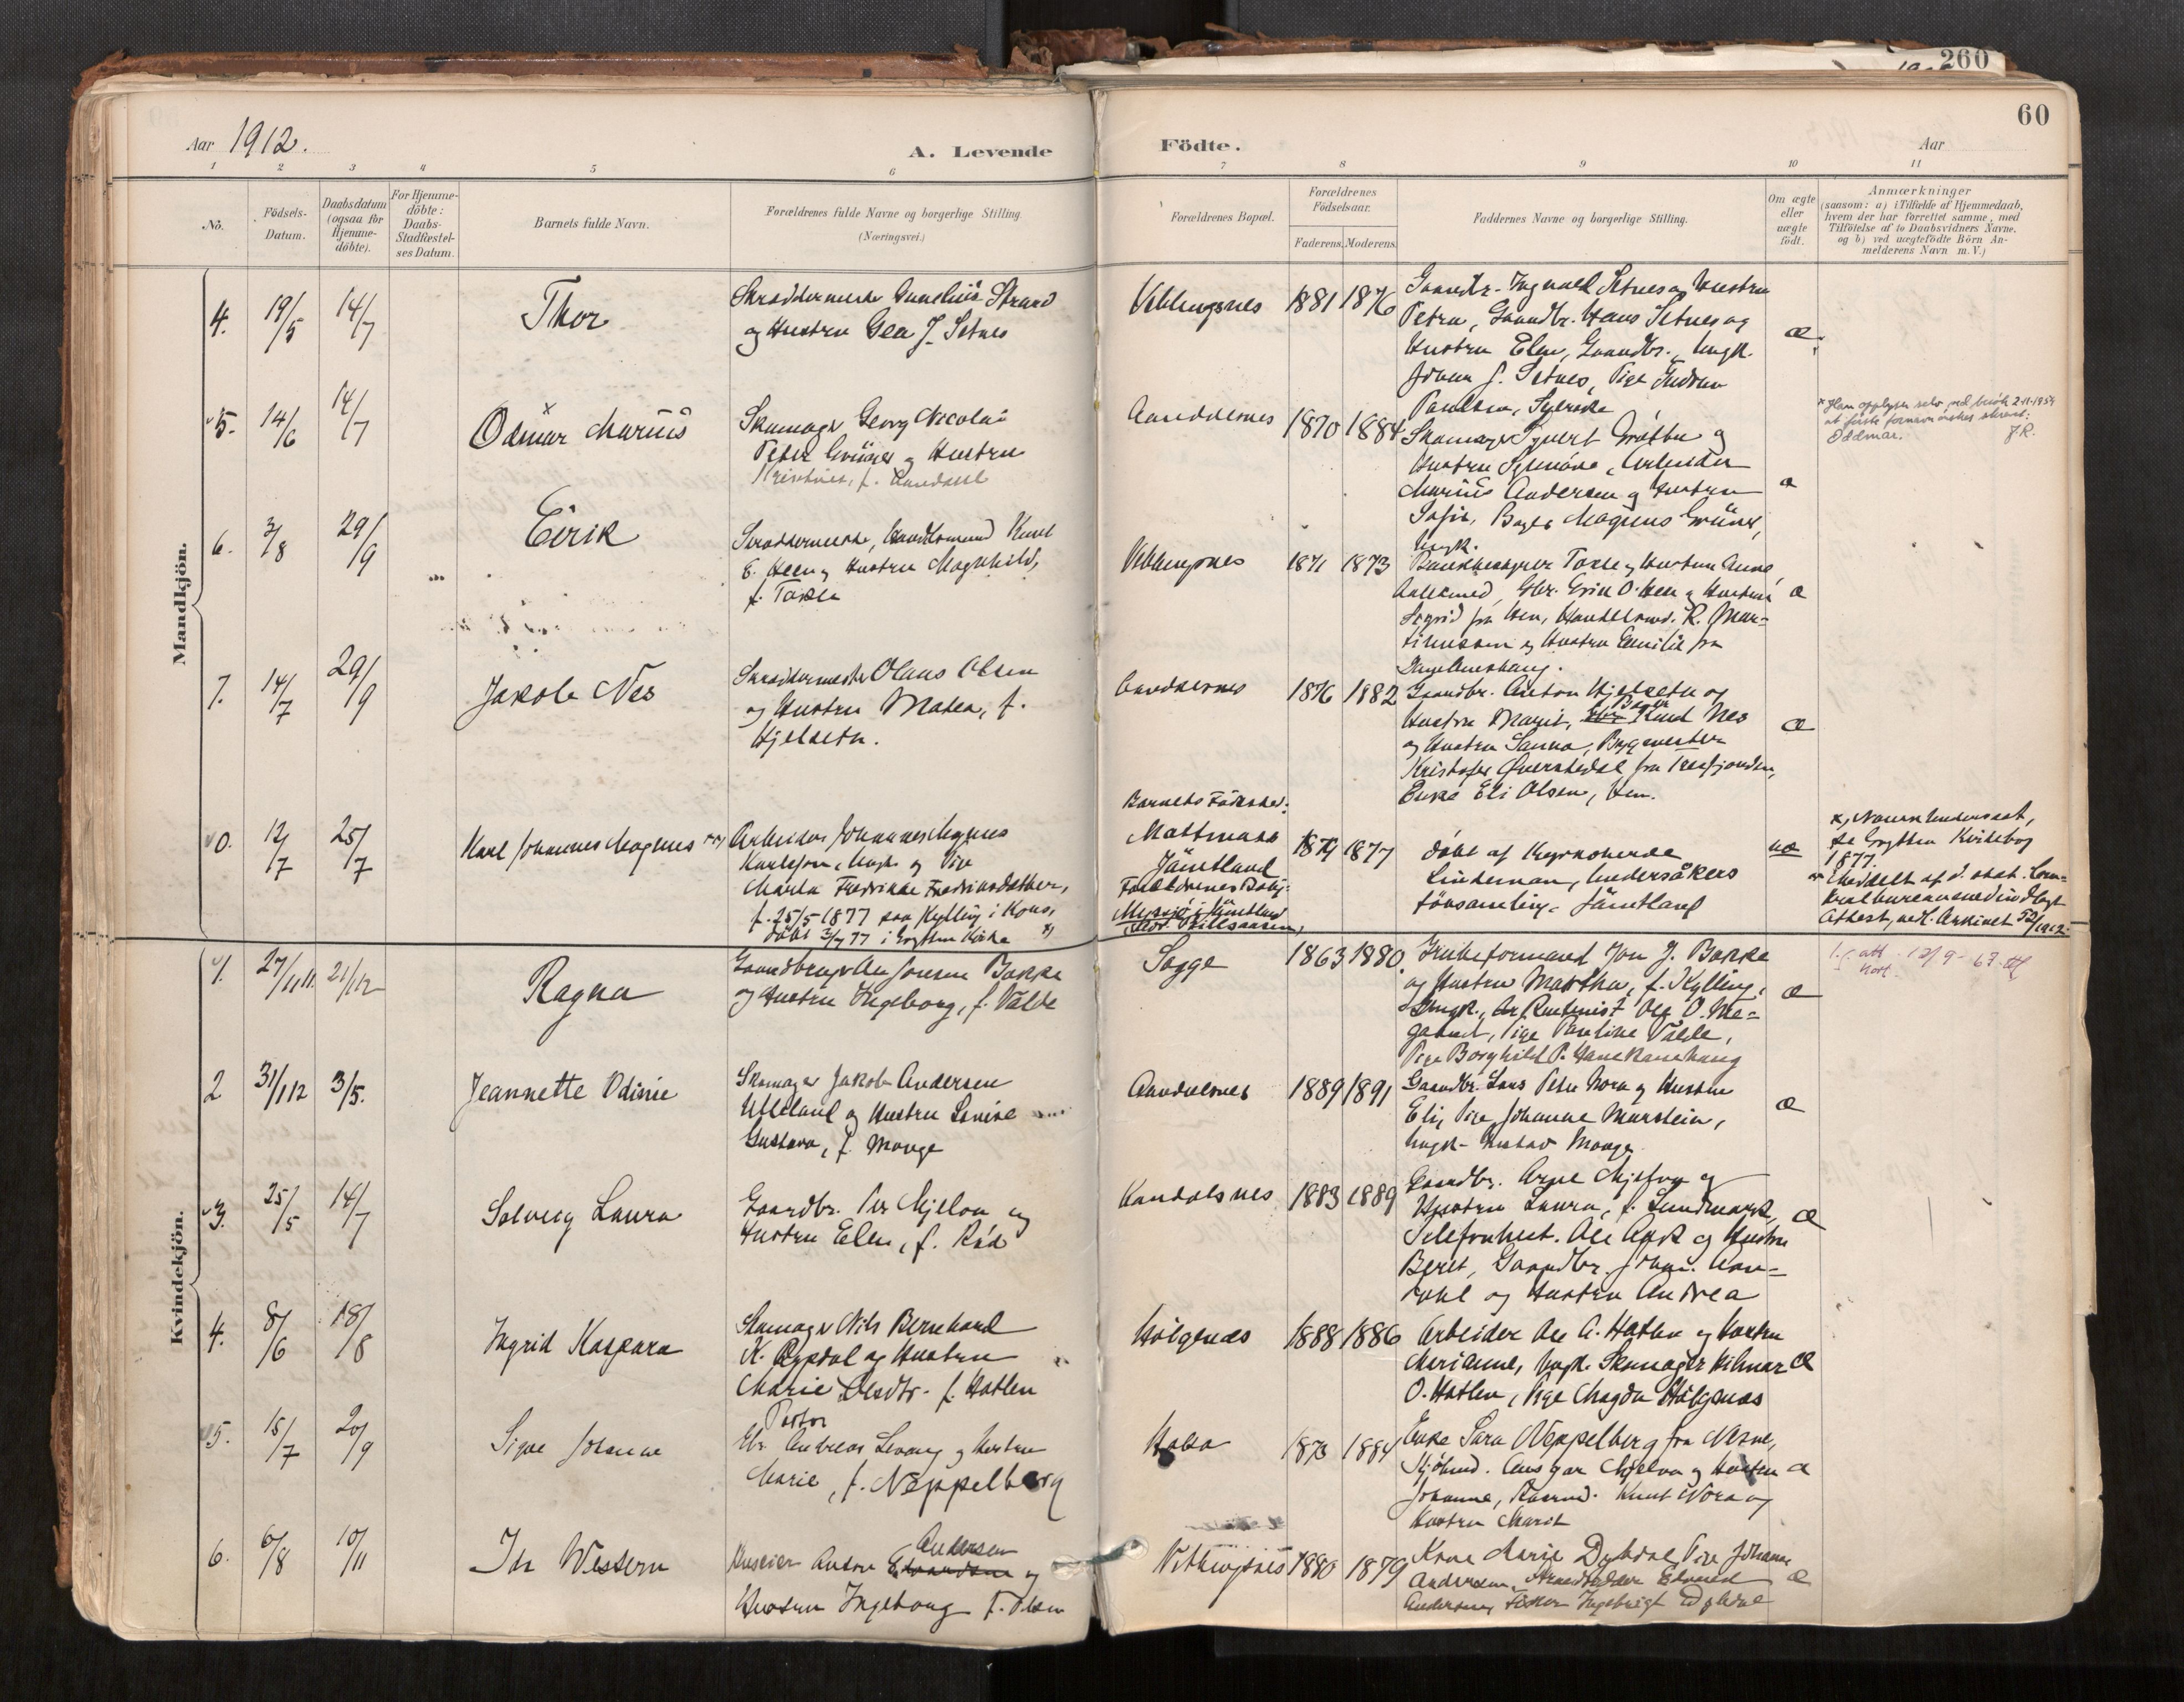 260
60
Aar 1912.
A. Levende
Födte.
Aar
1 2 3 4 5 6 7 8 9 10 11
No.
Födsels-Datum.
Daabsdatum (ogsaa for Hjemme-döbte).
For Hjemme-döbte: Daabs-Stadfæstel-ses Datum.
Barnets fulde Navn.
Forældrenes fulde Navne og borgerlige Stilling.
(Næringsvei.)
Forældrenes Bopæl.
Forældrenes Födselsaar.
Faderens. Moderens.
Faddernes Navne og borgerlige Stilling.
Om ægte eller uægte födt.
Anmærkninger
(saasom: a) i Tilfælde af Hjemmedaab,
hvem der har forrettet samme, med
Tilföielse af to Daabsvidners Navne.
og b) ved uægtefödte Börn An-
melderens Navn m. V.)
Mandkjön.
4. 19/5 14/7 Thor
Skræddermester Strand
og Hustru Gea J. Setnes
Veblungsnes 1881 1876
Gaardbr. Ingvald Setnes og Hustru
Petra, Gaardbr. Hans Setnes og
Hustru Elen, Gaardbr., Ungk.
Johan J. Setnes, Pige Gudrun
Paulsen, Sylerske
æ
5. 14/6 14/7 Odmar Marius
Skomager Georg Nicolai
Peter Grüner og Hustru
f. Aandahl
Aandalsnes 1870 1884
Skomager Syvert
Hustru , Arbeider
Marius Andersen og Hustru
Sofie, Bager Magnus Grüner,
Ungk.
æ
2-11-1954
Oddmar. J.R.
6. 3/8 29/9 Eirik
Skræddermester, Knut
E. Heen og Hustru Magnhild,
f. Tokle
Veblungsnes 1871 1873
Tokle og Hustru Anne,
Gbr. Erik O. Hen og Hustru
Sigrid fra Hen, Handelsmd. R. Mar-
og Hustru Emilie fra
æ
7. 14/7 29/9 Jakob Nes
Skræddermester Olaus Olsen
og Hustru Matea, f.
Hjelset.
Aandalsnes 1876 1882
Gaardbr. Anton Hjelset og
Hustru Marit, Bager Knud Nes
og Hustru Sanna, Bygmester
Kristofer fra Tresfjorden,
Enke Eli Olsen, Hen.
æ
0. 12/7 25/7 Karl Johannes Magnus
Arbeider Johannes Magnus
Karlsson, Ungk. og Pige
Marta Fredrikke Fredriksdatter,
f. 25/5 1877 paa Kylling i Kors,
döbt 3/7 77 i Grytten Kirke x)
Barnets Födested:
Mattmar
Jämtland
Forældrenes Bolig:
i Jämtland
1879 1877
döbt af Kyrkoherde
Lindeman, Undersåkers
församling, Jämtland
uæ
x) Norsk Undersaat,
se Grytten Kirkebog
1877.
Meddelt af d. stat. Cen-
Attest, vedl. Arkivet 52/1912.
Kvindekjön.
1. 27/11 11. 21/1 12 Ragna
Gaardbruger Jonsen Bakke
og Hustru Ingeborg, f. Välde
Sogge 1863 1880
Grubeformand Jon J. Bakke
og Hustru Martha, f. Kylling,
Ungk., Rentenist Ole O. Me-
galand, Pige Pauline Välde,
Pige Borghild P.
æ
12/9-67
2 31/1 12 3/5. Jeannette Odinie
Skomager Jakob Andersen
og Hustru Lovise
Gustava, f. Monge
Aandalsnes 1889 1891
Gaardbr. Lars Peter Nora og Hustru
Eli, Pige Johanne Marstein,
Ungk. Gustav Monge
æ
3. 25/5 14/7 Solveig Laura
Gaardbr. Per Mjelva og
Hustru Elen, f. Röd
Aandalsnes 1883 1889
Gaardbr. Arne Mjelva og
Hustru Laura, f. Lundmark,
Ole og Hustru
Beret, Gaardbr. Johan Aan-
dahl og Hustru Andrea
æ
4. 8/6 18/8 Ingrid Kaspara
Skomager Nils Bernhard
K. og Hustru
Marie Olesdtr. f. Hatlen
Holgenæs 1888 1886
Arbeider Ole A. Hatlen og Hustru
Marianne, Ungk. Skomager Hilmar
O. Hatlen, Pige Magda Holgenæs
æ
5. 15/7 20/9 Signe Johanne
Pastor
Andreas Levang og Hustru
Marie, f. Neppelberg
1873 1884
Enke Sara Neppelberg fra Nesne,
Kjöbmd. Ansgar Mjelva og Hustru
Johanne, Knut Nora og
Hustru Marit
æ
6. 6/8 10/11 Ih Wessern
Kuskier Anton Andersen og
Hustru Ingeborg f. Olsen
Veblungsnes 1880 1879
Kone Marie Dybdal, Pige Johanne
Andersen, Edvard
Andersen, Fisker Ingebrigt Dybdal
æ